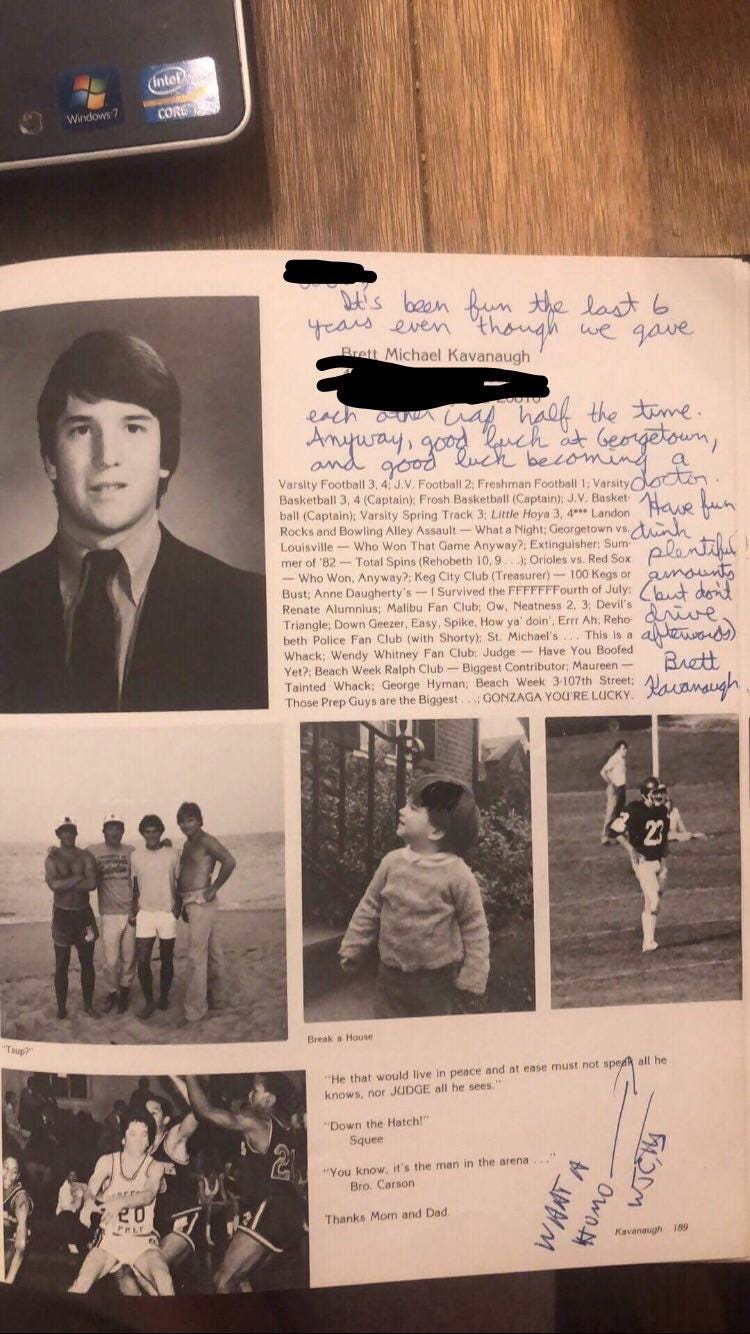 Windows 7
intel
CORE
It's been fun the last 6
years even though we gave
Brett Michael Kavanaugh
each other crap half the time.
Anyway, good luck at Georgetown,
and good luck becoming a
doctor.
Have fun
drink
plentiful
amounts
(but don't
drive
afterwards)
Brett
Kavanaugh
Varsity Football 3, 4; J.V. Football 2; Freshman Football 1; Varsity
Basketball 3, 4 (Captain); Frosh Basketball (Captain); J.V. Basket-
ball (Captain); Varsity Spring Track 3; Little Hoya 3, 4*** Landon
Rocks and Bowling Alley Assault — What a Night; Georgetown vs.
Louisville — Who Won That Game Anyway?; Extinguisher; Sum-
mer of '82 — Total Spins (Rehobeth 10, 9 . . .); Orioles vs. Red Sox
— Who Won, Anyway?; Keg City Club (Treasurer) — 100 Kegs or
Bust; Anne Daugherty's — I Survived the FFFFFFFourth of July;
Renate Alumnius; Malibu Fan Club; Ow, Neatness 2, 3; Devil's
Triangle; Down Geezer, Easy, Spike, How ya' doin', Errr Ah; Reho-
beth Police Fan Club (with Shorty); St. Michael's . . . This is a
Whack; Wendy Whitney Fan Club; Judge — Have You Boofed
Yet?; Beach Week Ralph Club — Biggest Contributor; Maureen —
Tainted Whack; George Hyman; Beach Week 3-107th Street;
Those Prep Guys are the Biggest . . .; GONZAGA YOU'RE LUCKY.
23
"Tsup?"
Break a House
20
PREP
21
"He that would live in peace and at ease must not speak all he
knows, nor JUDGE all he sees."
"Down the Hatch!"
Squee
"You know, it's the man in the arena . . ."
Bro. Carson
Thanks Mom and Dad.
WHAT A
HOMO
Kavanaugh 189